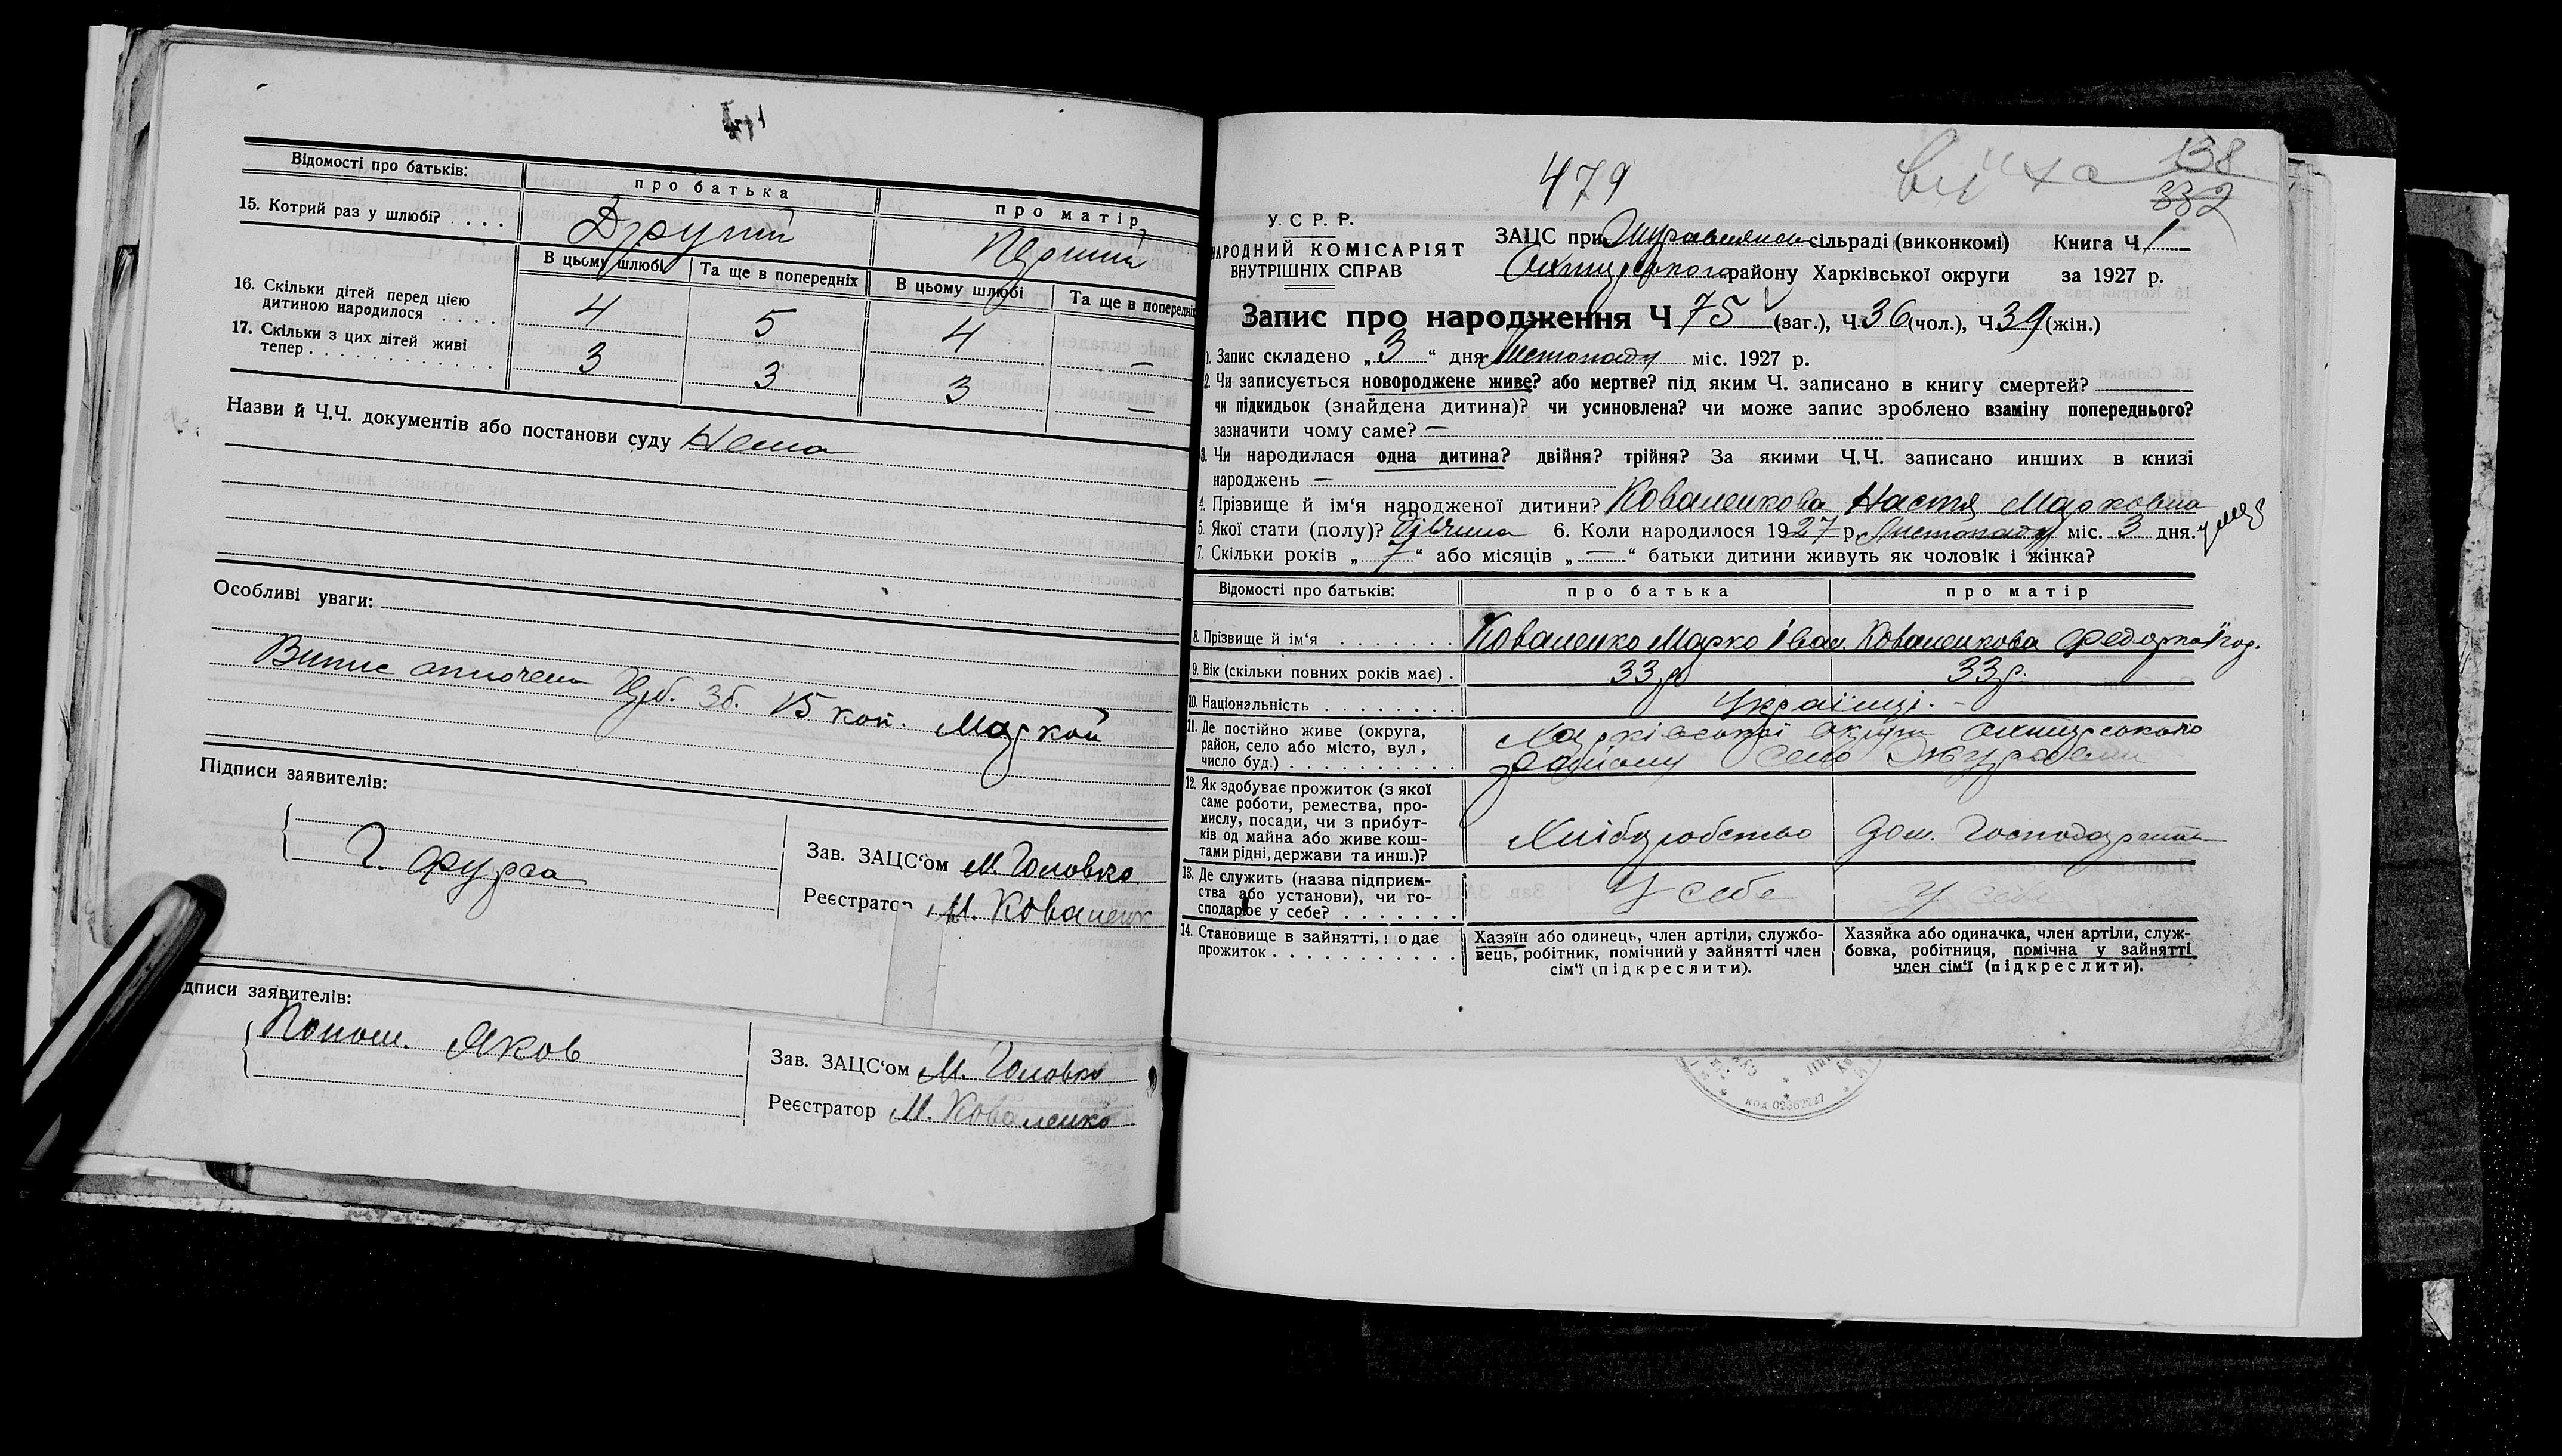 Відомості про батьків:
про батька
про матір
15. Котрий раз у шлюбі? . . . .
Другий
Перший
В цьому шлюбі
Та ще в попередніх
В цьому шлюбі
Та ще в попередніх
16. Скільки дітей перед цією
дитиною народилося . . . .
4
5
4
—
17. Скільки з цих дітей живі
тепер . . . . . . . . . . . .
3
3
3
—
Назви й Ч.Ч. документів або постанови суду Нема
Особливі уваги:
Випис оплочен Гр. зб. 15 коп. Маркой
Підписи заявителів:
Г. Фурса
Зав. ЗАЦС'ом М. Головко
Реєстратор М. Коваленк
дписи заявителів:
Яков
Зав. ЗАЦС'ом М. Головко
Реєстратор М. Коваленко
479
138
332
У. С Р. Р.
НАРОДНИЙ КОМІСАРІЯТ
ВНУТРІШНІХ СПРАВ
ЗАЦС при сільраді (виконкомі) Книга Ч 1
району Харківської округи за 1927 р.
Запис про народження Ч 75 (заг.), Ч. 36 (чол.), Ч. 39 (жін.)
1. Запис складено „ 3 “ дня Листопаду міс. 1927 р.
2. Чи записується новороджене живе? або мертве? під яким Ч. записано в книгу смертей?
чи підкидьок (знайдена дитина)? чи усиновлена? чи може запис зроблено взаміну попереднього?
зазначити чому саме? —
3. Чи народилася одна дитина? двійня? трійня? За якими Ч.Ч. записано инших в книзі
народжень —
4. Прізвище й ім'я народженої дитини? Коваленкова Настя Марковна
5. Якої стати (полу)? Дівчина 6. Коли народилося 1927 р. Листопаду міс. 3 дня.
7. Скільки років „ 7 “ або місяців „ — “ батьки дитини живуть як чоловік і жінка?
Відомості про батьків:
про батька
про матір
8. Прізвище й ім'я . . . . . . .
Коваленко Марко Іван.
Коваленкова Федорка
9. Вік (скільки повних років має) .
33 р.
33 р.
10. Національність . . . . . . . .
Українці. -
11. Де постійно живе (округа,
район, село або місто, вул,
число буд.) . . . . . . . . . .
Харківської округи
району село Журавним
12. Як здобуває прожиток (з якої
саме роботи, ремества, про-
мислу, посади, чи з прибут-
ків од майна або живе кош-
тами рідні, держави та инш.)?
Хліборобство
Дом. Господарство
13. Де служить (назва підприєм-
ства або установи), чи го-
сподарює у себе? . . . . . . .
У себе
У себе
14. Становище в зайнятті, що дає
прожиток . . . . . . . . . . .
Хазяїн або одинець, член артіли, службо-
вець, робітник, помічний у зайнятті член
сім'ї (підкреслити).
Хазяйка або одиначка, член артіли, служ-
бовка, робітниця, помічна у зайнятті
член сім'ї (підкреслити).